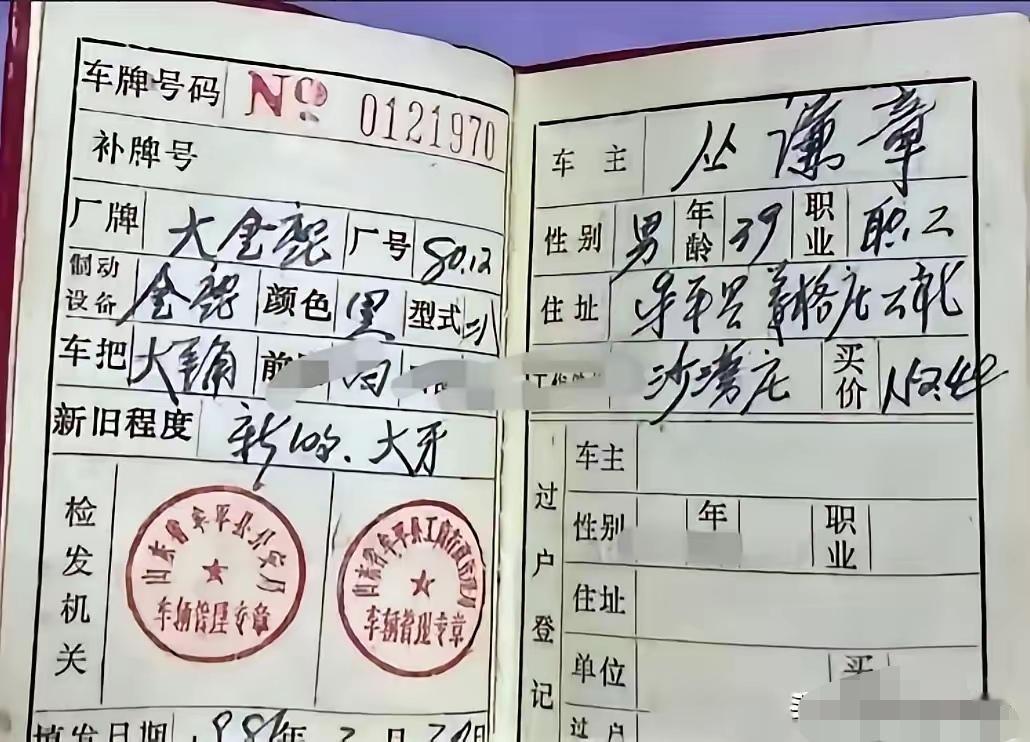 车牌号码 No 0121970
补牌号
厂牌 大金鹿 厂号 80.12
制动设备 金鹿 颜色 黑 型式 二八
车把 大弯 前
新旧程度 新 10分、大牙
检发机关
山东省牟平县公安局
车辆管理专章
山东省牟平县工商行政管理局
车辆管理专章
填发日期 198 年 2 月 日
车主 丛谦章
性别 男 年龄 39 职业 职工
住址 牟平县莒格庄公社
沙湾庄 买价 152.42
过户登记
车主
性别 年 职业
住址
单位 买
过户